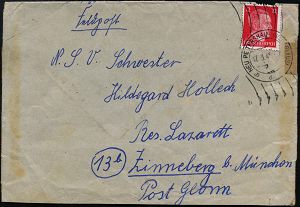 Feldpost
R. S. V. Schwester
Hildegard Hollech
Res. Lazarett
13b
Zinneberg b. München
Post Glonn